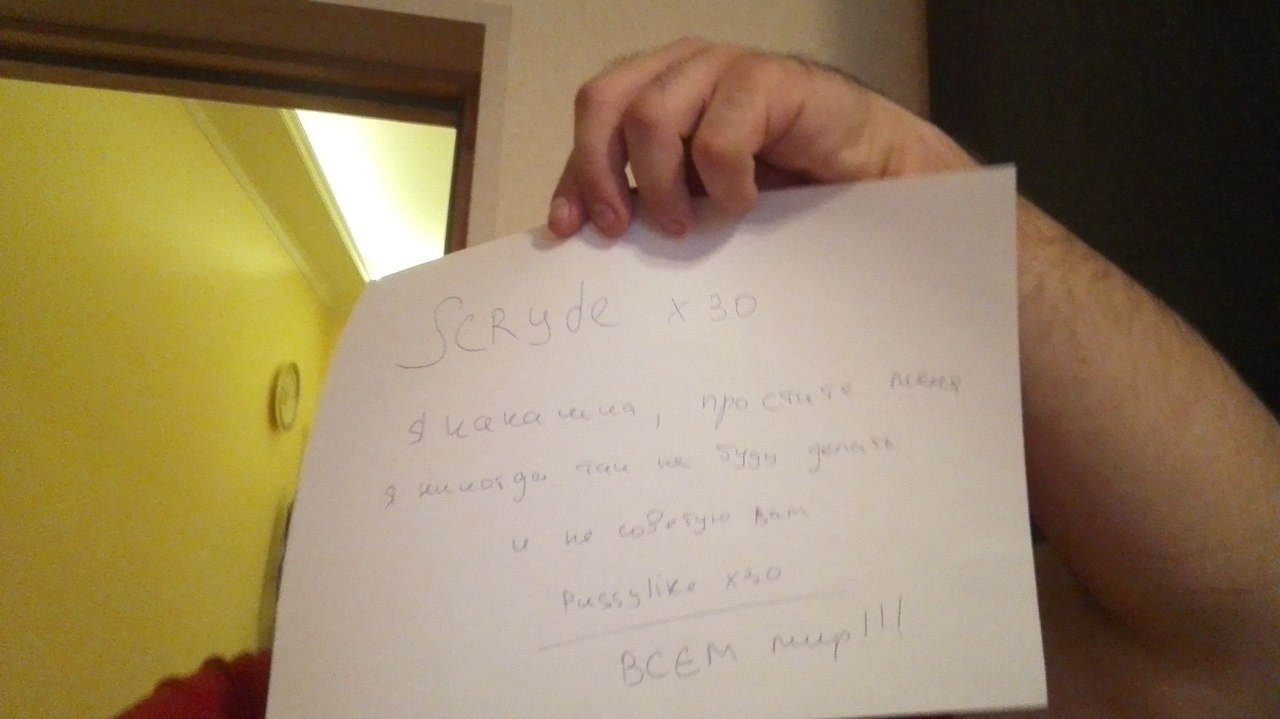 SCRyde x30
Я какашка, простите меня
Я никогда так не буду делать
и не советую вам
Pussylike x30
ВСЕМ мир!!!